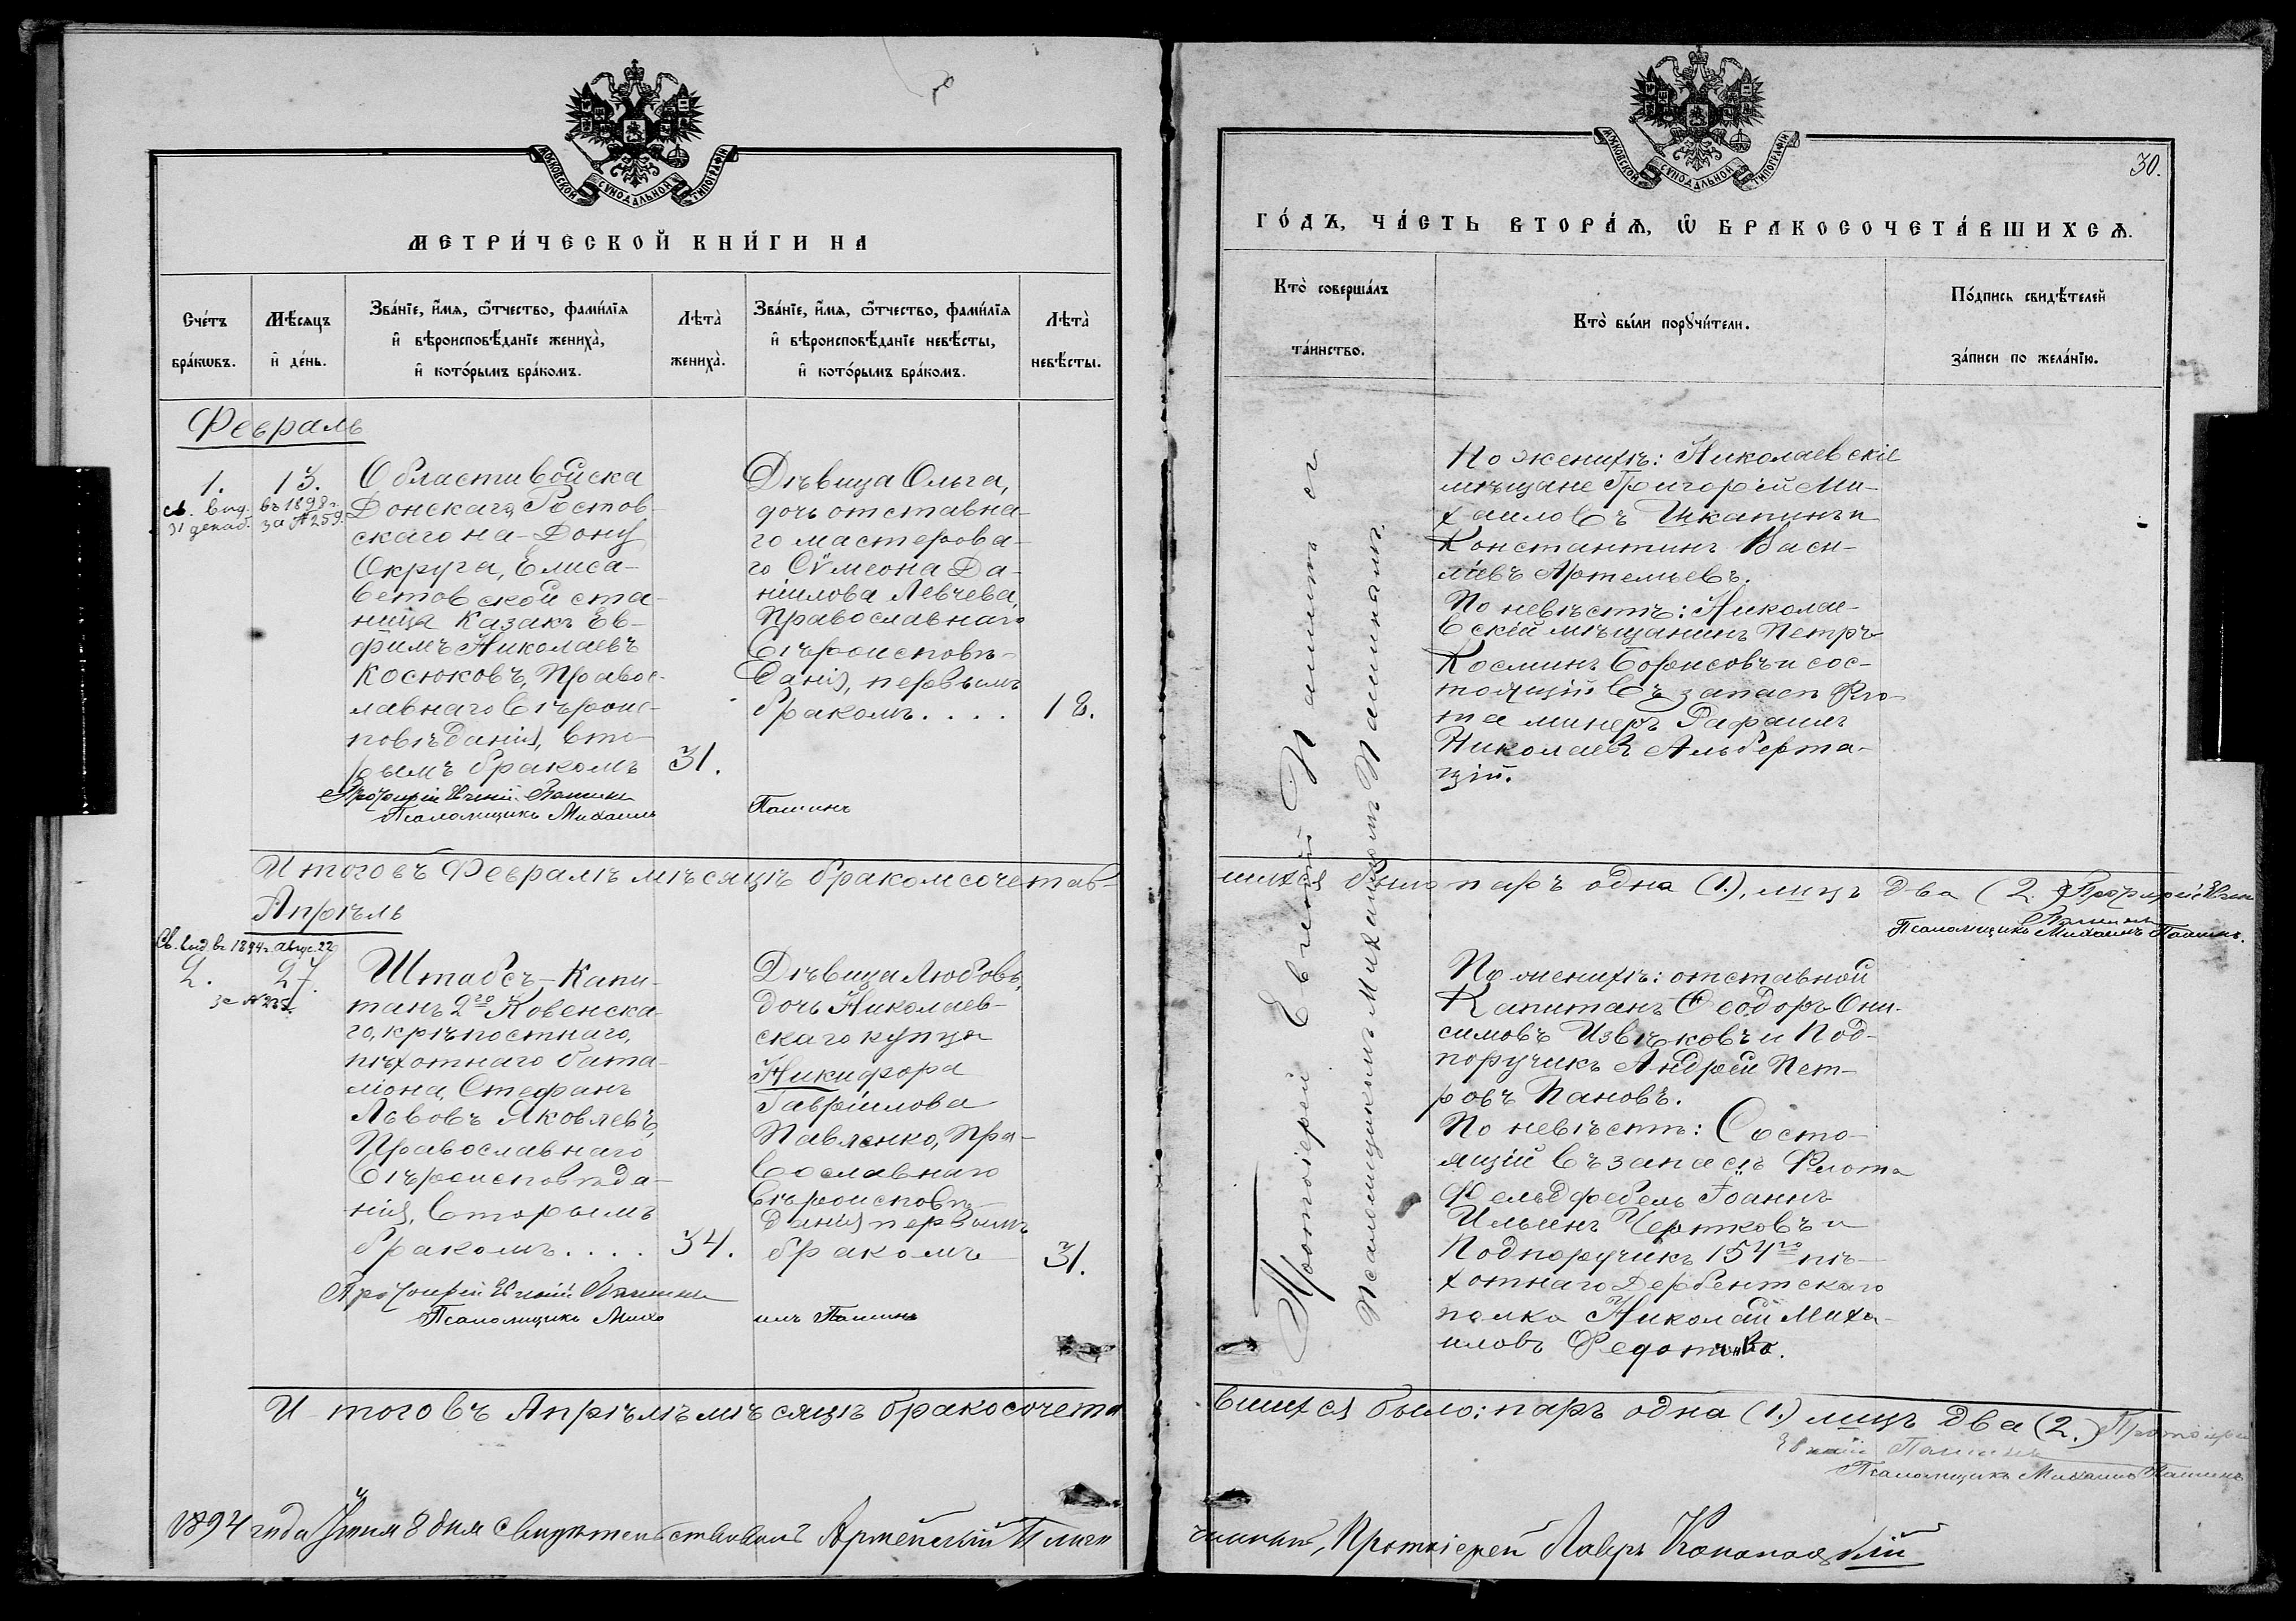 МОСКОВСКОЙ СѴНОДАЛЬНОЙ ТИПОГРАФІИ
МЕТРИ́ЧЕСКОЙ КНИ́ГИ НА
Сче́тъ бра́кѡвъ.
Мѣсяцъ и҆ де́нь.
Зва́нїе, и҆́мѧ, ѻ҆́тчество, фами́лїѧ
и҆ вѣроисповѣ́данїе жениха̀,
и҆ кото́рымъ бра́комъ.
Лѣта̀ жениха̀.
Зва́нїе, и҆́мѧ, ѻ҆́тчество, фами́лїѧ
и҆ вѣроисповѣ́данїе невѣ́сты,
и҆ кото́рымъ бра́комъ.
Лѣта̀ невѣ́сты.
Февраль
1.
13.
св. выд. въ 1898 г.
31 декаб. за № 259.
Области войска
Донскаго, Ростов-
скаго на-Дону
Округа, Елиса-
ветовской ста-
ница Казакъ Ев-
фимъ Николаевъ
Косюковъ, Правос-
лавнаго вѣроис-
повѣданія, вто-
рымъ бракомъ
31.
Дѣвица Ольга,
дочь отставна-
го мастерова-
го Сѵмеона Да-
ніилова Левчева,
Православнаго
вѣроисповѣ-
данія, первымъ
бракомъ. . . .
18.
Протоіерей Евгеній Пашинъ
Псаломщикъ Михаилъ Пашинъ
Итого въ Февралѣ мѣсяцѣ бракомсочетав-
Апрѣль
Св. выд. въ 1894 г. авгус. 22
2.
27.
за № 235.
Штабсъ-Капи-
танъ 2го Ковенска-
го, крѣпостнаго,
пѣхотнаго бата-
ліона, Стефанъ
Львовъ Яковлевъ,
Православнаго
вѣроисповѣда-
нія, вторымъ
бракомъ. . . .
34.
Дѣвица Любовь,
дочь Николаев-
скаго купца
Никифора
Гавріилова
Павленко, Пра-
вославнаго
вѣроисповѣ-
данія первымъ
бракомъ
31.
Протоіерей Евгеній Пашинъ
Псаломщикъ Михаилъ Пашинъ
Итого въ Апрѣлѣ мѣсяцѣ бракосочета
1894 года Іюня 8 дня свидѣтельствовалъ Армейскій Благо
МОСКОВСКОЙ СѴНОДАЛЬНОЙ ТИПОГРАФІИ
30.
ГО́ДЪ, ЧА́СТЬ ВТОРА́Ѧ, Ѡ҆ БРАКОСОЧЕТА́ВШИХСѦ.
Кто̀ соверша́лъ
та́инство.
Кто̀ бы́ли порꙋчи́тели.
По́дпись свидѣ́телей
за́писи по жела́нїю.
Протоіерей Евгеній Пашинъ съ
Псаломщикомъ Михаиломъ Пашинымъ.
По женихѣ: Николаевскіе
мѣщане Григорій Ми-
хаиловъ Шкапинъ и
Константинъ Васи-
ліевъ Артемьевъ.
По невѣстѣ: Николае-
вскій мѣщанинъ Петръ
Косминъ Борисовъ и сос-
тоящій въ запасѣ Фло-
та минеръ Рафаилъ
Николаевъ Альберта-
цій.
шихся было паръ одна (1.), лицъ два (2.) Протоіерей Евгеній
Пашинъ
Псаломщикъ Михаилъ Пашинъ.
По женихѣ: отставной
Капитанъ Ѳеодоръ Они-
симовъ Извѣковъ и Под-
поручикъ Андрей Пет-
ровъ Пановъ.
По невѣстѣ: Состо-
ящій въ запасѣ Флота
Фельдфебель Іоаннъ
Ильинъ Чертковъ и
Подпоручикъ 154го пѣ-
хотнаго Дербентскаго
полка Николай Миха-
иловъ Федотенко.
вшихся было: паръ одна (1.) лицъ два (2.) Протоіерей
Евгеній Пашинъ
Псаломщикъ Михаилъ Пашинъ
чинный, Протоіерей Лавръ